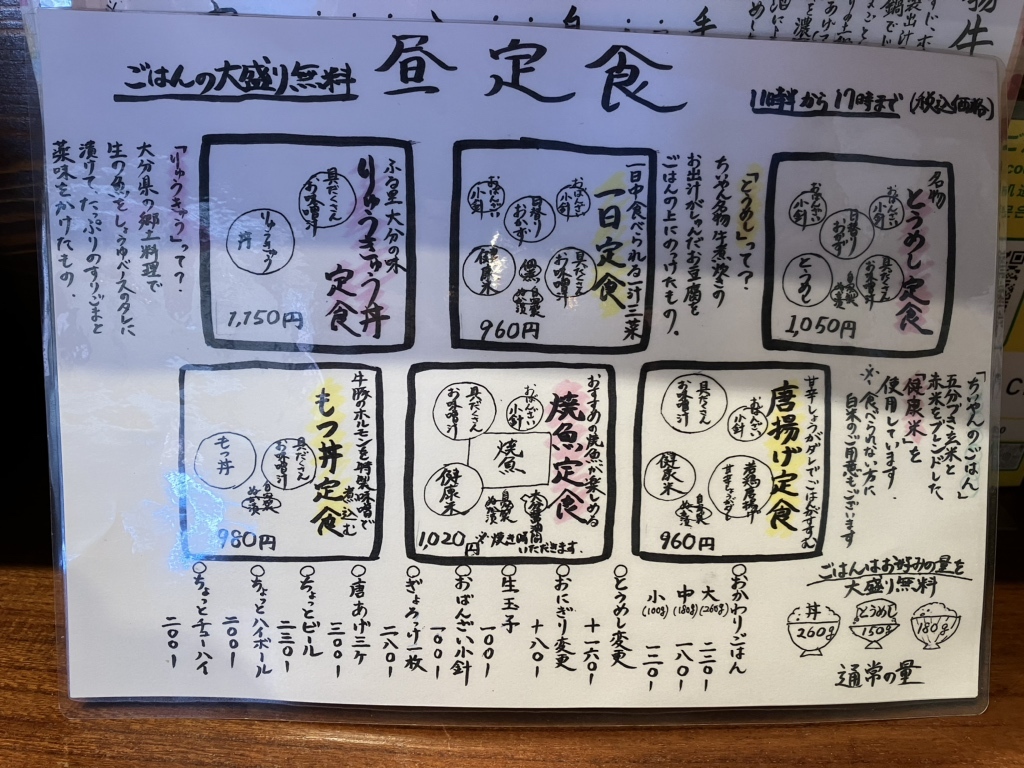 昼定食
ごはんの大盛り無料
11時半から17時まで(税込価格)
名物
とうめし定食
おばんざい小針
おばんざい小針
日替りおかず
とうめし
自家製ぬか漬
具だくさんお味噌汁
1,050円
「とうめし」って?
ちいやん名物牛煮炊きの
お出汁がしゅんだお豆腐を
ごはんの上にのっけたもの。
一日中食べられる一汁三菜
一日定食
おばんざい小針
日替りおかず
おばんざい小針
健康米
自家製ぬか漬
具だくさんお味噌汁
960円
ふる里大分の味
りゅうきゅう丼
定食
具だくさんお味噌汁
りゅうきゅう丼
1,150円
「りゅうきゅう」って?
大分県の郷土料理で
生の魚をしょうゆベースのタレに
漬けてたっぷりのすりごまと
薬味をかけたもの。
「ちぃやんのごはん」
五分づき玄米と
赤米をブレンドした、
「健康米」を
使用しています。
※食べられない方に
白米のご用意もございます
唐揚げ定食
甘辛しょうがダレでごはんがすすむ
具だくさんお味噌汁
おばんざい小針
健康米
自家製ぬか漬
960円
おすすめの焼魚が楽しめる
焼魚定食
具だくさんお味噌汁
おばんざい小針
焼魚
健康米
自家製ぬか漬
1,020円
※焼き時間いただきます。
牛豚のホルモンを特製味噌で煮込む
もつ丼定食
もつ丼
具だくさんお味噌汁
自家製ぬか漬
980円
ごはんはお好みの量を
大盛り無料
丼
260g
とうめし
150g
180g
通常の量
○おかわりごはん
大(260g) 二二〇-
中(180g) 一八〇-
小(100g) 一二〇-
○とうめし変更 +一六〇-
○おにぎり変更 +八〇-
○生玉子 一〇〇-
○おばんざい小針 一〇〇-
○ぎょろっけ一枚 二八〇-
○唐あげ三ヶ 三〇〇-
○ちょっとビール 二三〇-
○ちょっとハイボール 二〇〇-
○ちょっとチューハイ 二〇〇-